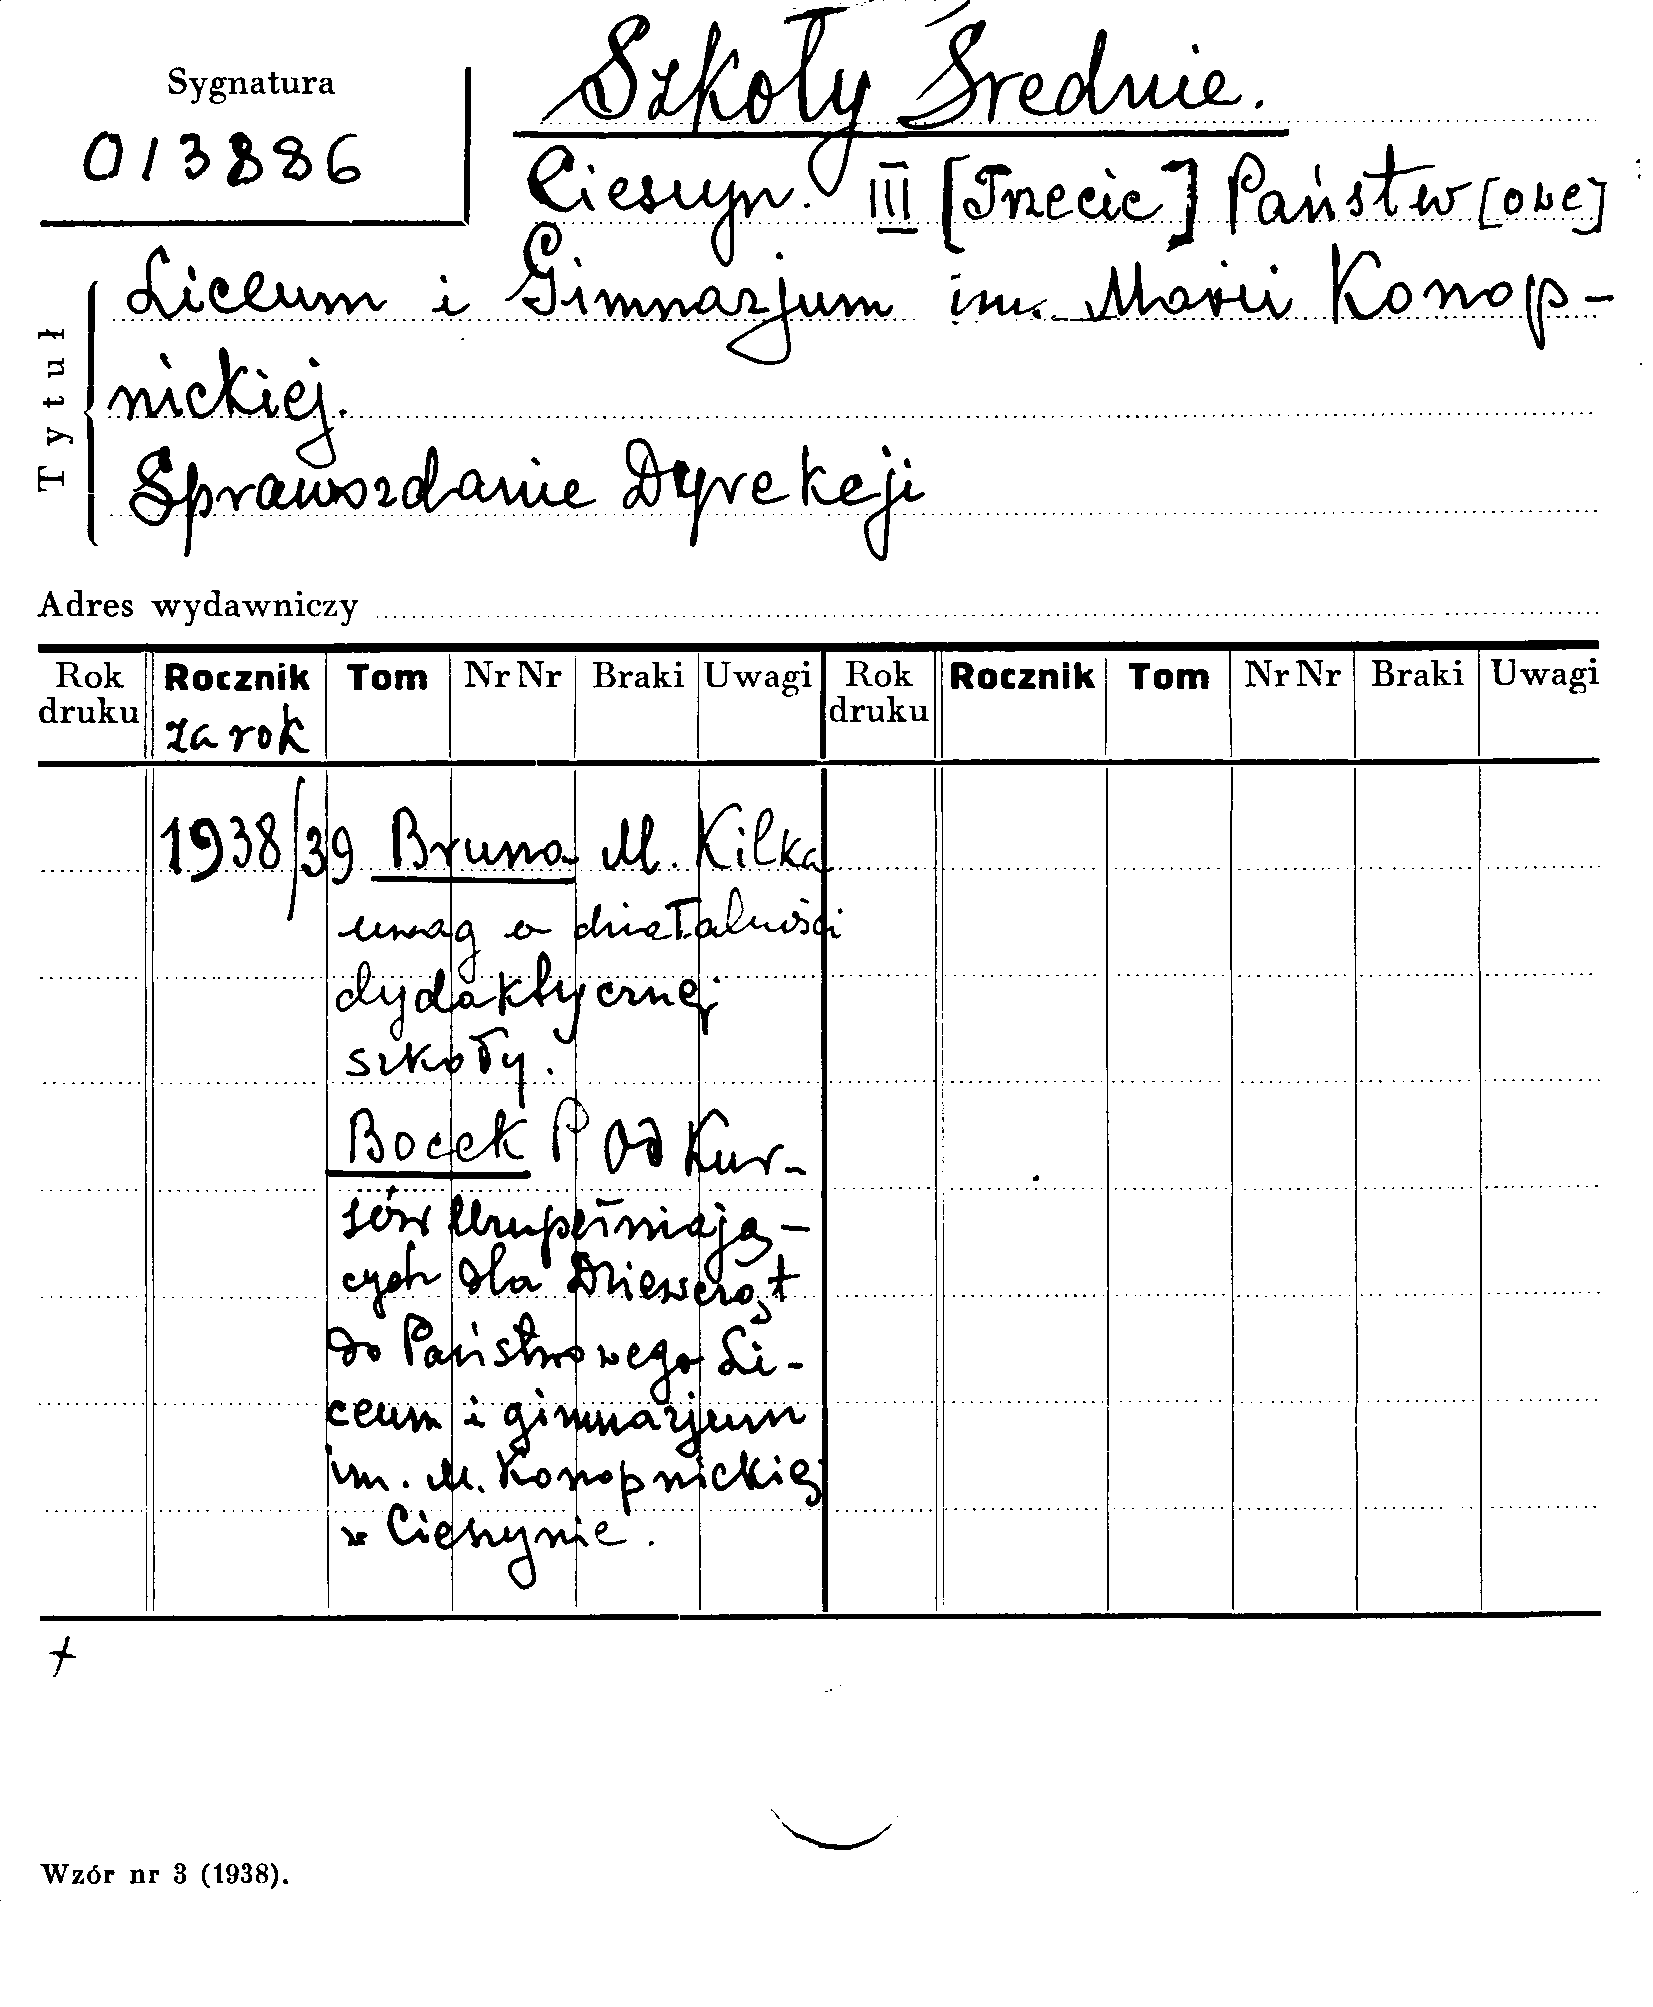 Szkoły Średnie.
Sygnatura
013886
Cieszyn. III [Trzecie] Państw[owe]
Liceum i Gimnazjum im. Marii Konop-
nickiej.
Sprawozdanie Dyrekcji
Tytuł
Adres wydawniczy
Rok druku Rocznik Tom Nr Nr Braki Uwagi Rok druku Rocznik Tom Nr Nr Braki Uwagi
za rok
1938/39 Bruno M. Kilka
uwag o działalności
dydaktycznej
szkoły.
Bocek P Od Kur-
sów Uzupełniają-
cych dla Dziewcząt
do Państwowego Li-
ceum i gimnazjum
im. M. Konopnickiej
w Cieszynie.
+
Wzór nr 3 (1938).